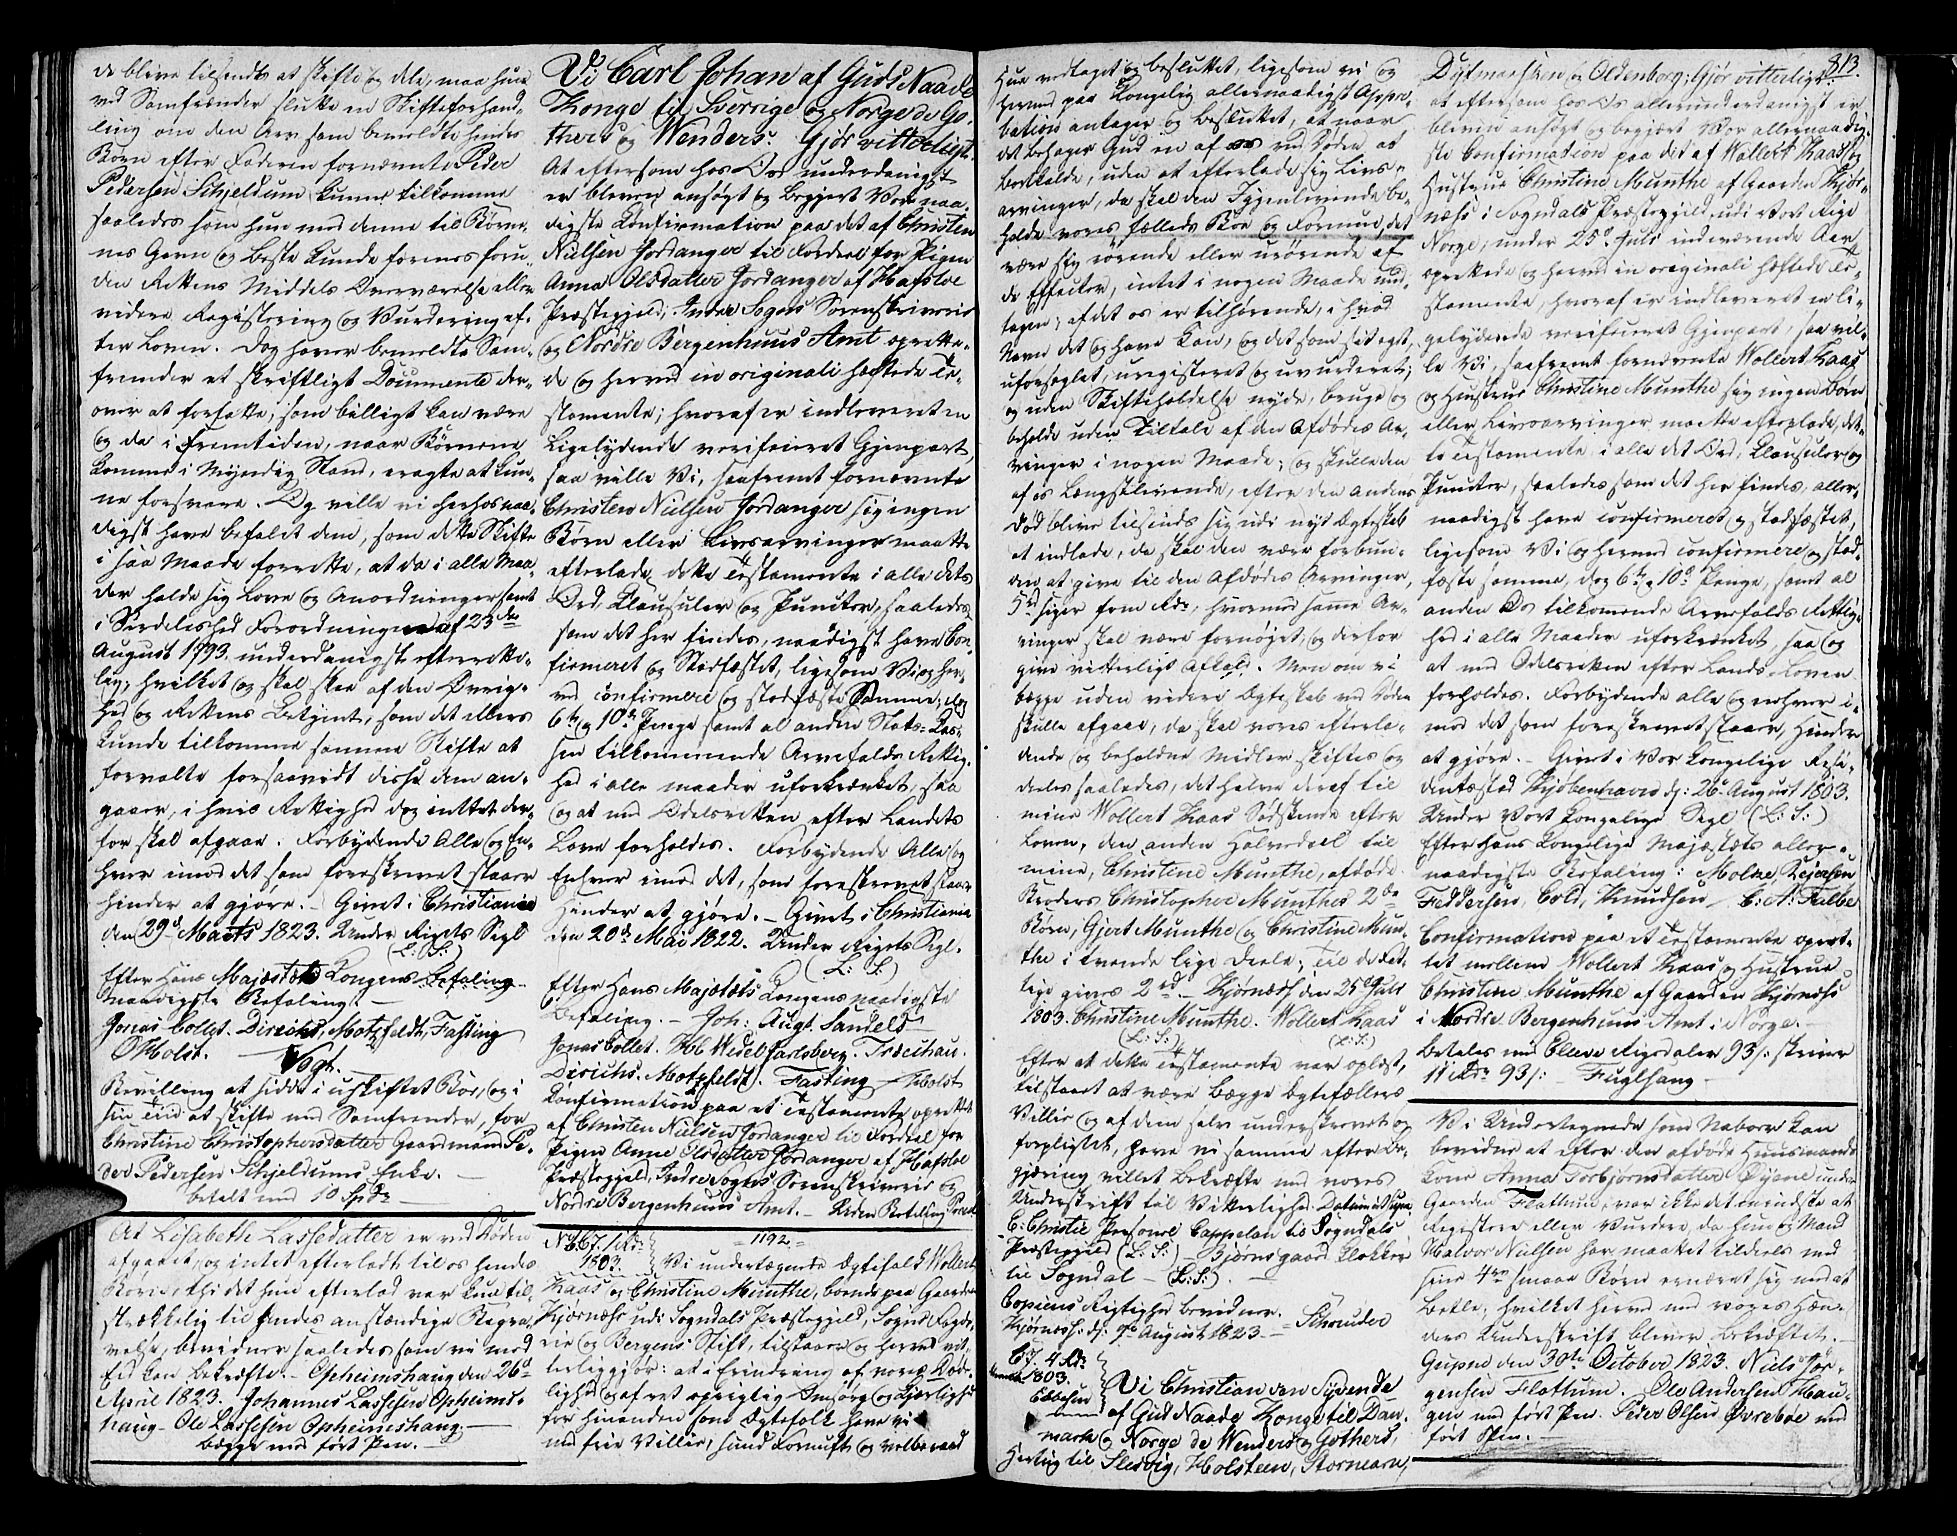 de blive tilsendt at skifte og dele, maa hun
ved Samfrænder slutte en Skifteforhand-
ling om den Arv som bemeldte hendes
Børn efter Faderen fornævnte Peder
Pedersen Skjeldum kunne tilkomme
saaledes som hun med denne til Børne-
nes Gavn og Beste kunde forenes foru-
den Rettens Middels Overværelse eller
videre Registering og Vurdering ef-
ter Loven. Dog haver bemeldte Sam-
frender et skriftligt Document der-
over at forfatte, som billigt kan være
og de i Fremtiden, naar Børnene
komme i Myndig Stand, eragte at kun-
ne forsvare. Og ville vi herhos naa-
digst have befalet dem, som dette Skifte
i saa Maade forrette, at de i alle Maa-
der holde sig Love og Anordninger samt
i Særdeleshed Forordningen af 23de
August 1793 underdanigst efterrette-
lig; hvilket og skal skee af den Øvrig-
hed og Rettens Betjent, som det ellers
kunde tilkomme samme Skifte at
forvalte forsaavidt disse dem an-
gaaer, i hvis Rettighed dog intet der-
for skal afgaae. Forbydende Alle og En-
hver imod det som foreskrevet staaer
Hinder at gjøre. Givet i Christiania
den 29d Marts 1823. Under Rigets Segl
(L: S:)
Efter Hans Majestæt Kongens Befaling
Naadigste Befaling.
Jonas Collet. Diriks, Motzfeldt, Fasting
Holst.
Vogt.
Bevilling at sidde i uskiftet Boe, og i
sin tid at skifte med Samfrender, for
Christine Christophersdatter Gaardmand Pe-
der Pedersen Skjeldums Enke.
betalt med 10 Spd
At Lisabeth Lassedatter er ved Døden
afgaaet, og intet efterladt til os hendes
Børn, thi det hun efterlod var kun til-
strækkelig til hendes anstændige Begra-
velse, bevidner saaledes som vi med
Eed kan bekræfte. Opheimshaug den 26d
April 1823. Johannes Lassesen Opheims-
haug. Ole Lassesen Opheimshaug
begge med ført Pen.
Vi Carl Johan af Guds Naade
Konge til Sverrige og Norge de Go-
thers og Wenders: Gjør vitterligt:
At eftersom hos Os underdanigst
er bleven ansøgt og begjert Vor naa-
digste Confirmation paa det af Christen
Nielsen Jordanger til Fordeel for Pigen
Anna Olsdatter Jordanger af Hafsloe
Præstegjeld, Indre Sogns Sorenskriverie
og Nordre Bergenhuus Amt oprette-
de og herved in originali heftede Te-
stamente; hvoraf er indleveret en
Ligelydende verificeret Gjenpart,
saa ville Vi, saafremt fornævnte
Christen Nielsen Jordanger sig ingen
Børn eller Livsarvinger maatte
efterlade dette Testamente i alle dets
Ord, Clausuler og Puncter, saaledes
som det her findes, naadigst have Con-
firmeret og Stadfæstet, ligesom Vi og her-
ved confirmere og stadfæste Samme; dog
6te og 10de Penge samt al anden Stats-Cas-
sen tilkommende Arvefalds Rettig-
hed i alle maader uforkrænket, saa
og at med Odelsretten efter Landets
Love forholdes. Forbydende Alle og
Enhver imod det, som foreskrevet staaer
Hinder at gjøre. Givet i Christiania
den 20de Mai 1822. Under Rigets Segl.
(L: S:)
Efter Hans Majestæts Kongens naadigste
Befaling. Joh: Aug: Sandels
Jonas Collet. Hbl Wedel Jarlsberg. Treschau.
Diriks. Motzfeldt. Fasting Holst
Confirmation paa et Testamente oprettet
af Christen Nielsen Jordanger til Fordeel for
Pigen Anne Olsdatter Jordanger af Hafsloe
Præstegjeld, Indre Sogns Sorenskriverie og
Nordre Bergenhuus Amt. Uden Betaling
No 67. 1 Rdr 1192
1803. Vi undertegnede Egtefolk Wollert
Kaas og Christine Munthe, boende paa Gaarden
Kjørnæhs udi Sogndals Præstegjeld, Sogns Fogde-
rie og Bergens Stift, tilstaaer og herved vit-
terliggjør: at i Erindring af vores Døde-
lighed og af ret oprigtig Omsorg og Kjerlighed
for hinanden som Egtefolk have vi
med frie Villie, sund Fornuft og velberaad
813.
Hue vedtaget og besluttet, ligesom vi og
herved paa Kongelig allernaadigst Appro-
bation antager og beslutter, at naar
det behager Gud en af os ved Døden at
bortkalde, uden at efterlade sig Livs-
arvinger, da skal den Igjenlevende be-
holde vores fælleds Boe og Formue, det
være sig rørende eller urørende af
de Effecter, intet i nogen Maade und-
tagen; af det os er tilhørende, i hvad
Navn det og have kan, og det som sit eget,
uforseglet, uregisteret og uvurderet;
og uden Skifteholdelse nyde, bruge og
beholde uden Tiltale af den Afdødes Ar-
vinger i nogen Maade; og skulle den
af os Længstlevende, efter den Andens
Død blive tilsinds sig udi nyt Egteskab
at indlade, da skal den være forbun-
den at give til den Afdødes Arvinger,
5d siger fem Rdr, hvormed samme Ar-
vinger skal være fornøjet, og derfor
give vitterligt Afkald. Men om vi
begge uden videre Egteskab ved Døden
skulle afgaae, da skal vores efterla-
dende og beholdne Midler skiftes og
deeles saaledes, det halve deraf til
mine Wollert Kaas Sødskende efter
Loven, den anden Halvedeel til
mine, Christine Munthe, afdøde
Broders Christopher Munthes 2de
Børn, Gjert Munthe og Christine Mun-
the i tvende lige Deele; Til de Fat-
tige gives 2rd. Kjørnæhs den 25de Juli
1803. Christine Munthe. Wollert Kaas
(L: S:) (L: S:)
Efter at dette Testamente var oplæst,
tilstaaet at være begge Egtefællers
Villie og af dem selv underskrevet og
forseglet, have vi samme efter Be-
gjæring villet bekræfte med vores
Underskrift til Vitterlighed. Datum ut supra
C: Christie Personel Cappelan til Sogndals
Præstegjeld (L: S:) Bjørnsgaard Klokker
til Sogndal (L: S:)
Copiens Rigtighed bevidner.
Kjørnæs d: 9de August 1823. Schrøuder
67. 4 Rdr
1803.
Ebbesen
Vi Christian den Syvende
af Guds Naade Konge til Dan-
mark og Norge de Wenders og Gothers,
Hertug til Slesvig, Holsteen, Stormarn,
Dytmarsken og Oldenborg; Gjør vitterligt:
at eftersom hos Os allerunderdanigst er
bleven ansøgt og begjært Vor allernaadig-
ste Confirmation paa det af Wollert Kaas og
Hustrue Christine Munthe af Gaarden Kjør-
næhs i Sogndals Præstegjeld udi Vort Rige
Norge, under 25d Juli indeværende Aar
oprettede og herved in originali heftede Te-
stamente, hvoraf er indleveret en li-
gelydende verificeret Gjenpart, saa vil-
le Vi, saafremt fornævnte Wollert Kaas
og Hustrue Christine Munthe sig ingen Børn
eller Livsarvinger maatte efterlade, det-
te Testamente i alle det Ord, Clausuler og
Puncter, saaledes som det her findes, aller-
naadigst have confirmeret og stadfæstet,
ligesom Vi og herved confirmere og stad-
fæste samme, dog 6te og 10de Penge, samt al
anden Os tilkommende Arvefalds Rettig-
hed i alle Maader uforkrænket, saa og
at med Odelsretten efter Lands-Loven
forholdes. Forbydende alle og enhver i-
mod det som foreskrevet staaer, Hinder
at gjøre. Givet i Vor Kongelige Resi-
dentsstad Kjøbenhavn d: 26d August 1803.
Under Vort Kongelige Segl (L: S:)
Efter Hans Kongelige Majestæts aller-
naadigste Befaling: Molke, Reiersen
Feddersen, Cold, Knudsen C: A: Falbe
Confirmation paa et Testamente opret-
tet mellem Wollert Kaas og Hustrue
Christine Munthe af Gaarden Kjørnæhs
i Nordre Bergenhuus Amt i Norge.
Betales med Elleve Rigsdaler 93/: skriver
11 Rdr 93/: Fuglsang
Vi Undertegnede som Naboer kan
bevidne at efter den afdøde Huusmands
Kone Anna Torbjørnsdatter Øyene under
Gaarden Flattum, var ikke det mindste at
Registere eller Vurdere, da hun og Mand
Halvor Nielsen har maattet tildeels med
sine 4re smaae Børn ernæret sig med at
Betle; hvilket herved med vores Hæn-
ders Underskrift bliver bekræftet.
Gupne den 30te October 1823. Niels Jør-
gensen Flattum. Ole Andersen Hau-
gen med ført Pen. Peder Olsen Øvrebøe med
ført Pen.